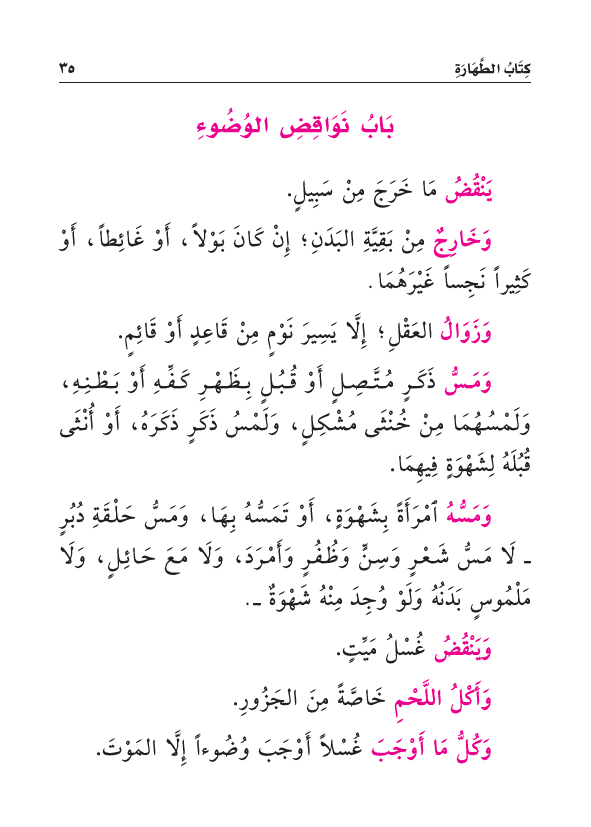 كِتَابُ الطَّهَارَةِ ٣٥
بَابُ نَوَاقِضِ الوُضُوءِ
يَنْقُضُ مَا خَرَجَ مِنْ سَبِيلٍ.
وَخَارِجٌ مِنْ بَقِيَّةِ البَدَنِ؛ إِنْ كَانَ بَوْلاً، أَوْ غَائِطاً، أَوْ
كَثِيراً نَجِساً غَيْرَهُمَا.
وَزَوَالُ العَقْلِ؛ إِلَّا يَسِيرَ نَوْمٍ مِنْ قَاعِدٍ أَوْ قَائِمٍ.
وَمَسُّ ذَكَرٍ مُتَّصِلٍ أَوْ قُبُلٍ بِظَهْرِ كَفِّهِ أَوْ بَطْنِهِ،
وَلَمْسُهُمَا مِنْ خُنْثَى مُشْكِلٍ، وَلَمْسُ ذَكَرٍ ذَكَرَهُ، أَوْ أُنْثَى
قُبُلَهُ لِشَهْوَةٍ فِيهِمَا.
وَمَسُّهُ ٱمْرَأَةً بِشَهْوَةٍ، أَوْ تَمَسُّهُ بِهَا، وَمَسُّ حَلْقَةِ دُبُرٍ
ـ لَا مَسُّ شَعْرٍ وَسِنٍّ وَظُفُرٍ وَأَمْرَدَ، وَلَا مَعَ حَائِلٍ، وَلَا
مَلْمُوسٍ بَدَنُهُ وَلَوْ وُجِدَ مِنْهُ شَهْوَةٌ ـ.
وَيَنْقُضُ غُسْلُ مَيِّتٍ.
وَأَكْلُ اللَّحْمِ خَاصَّةً مِنَ الجَزُورِ.
وَكُلُّ مَا أَوْجَبَ غُسْلاً أَوْجَبَ وُضُوءاً إِلَّا المَوْتَ.